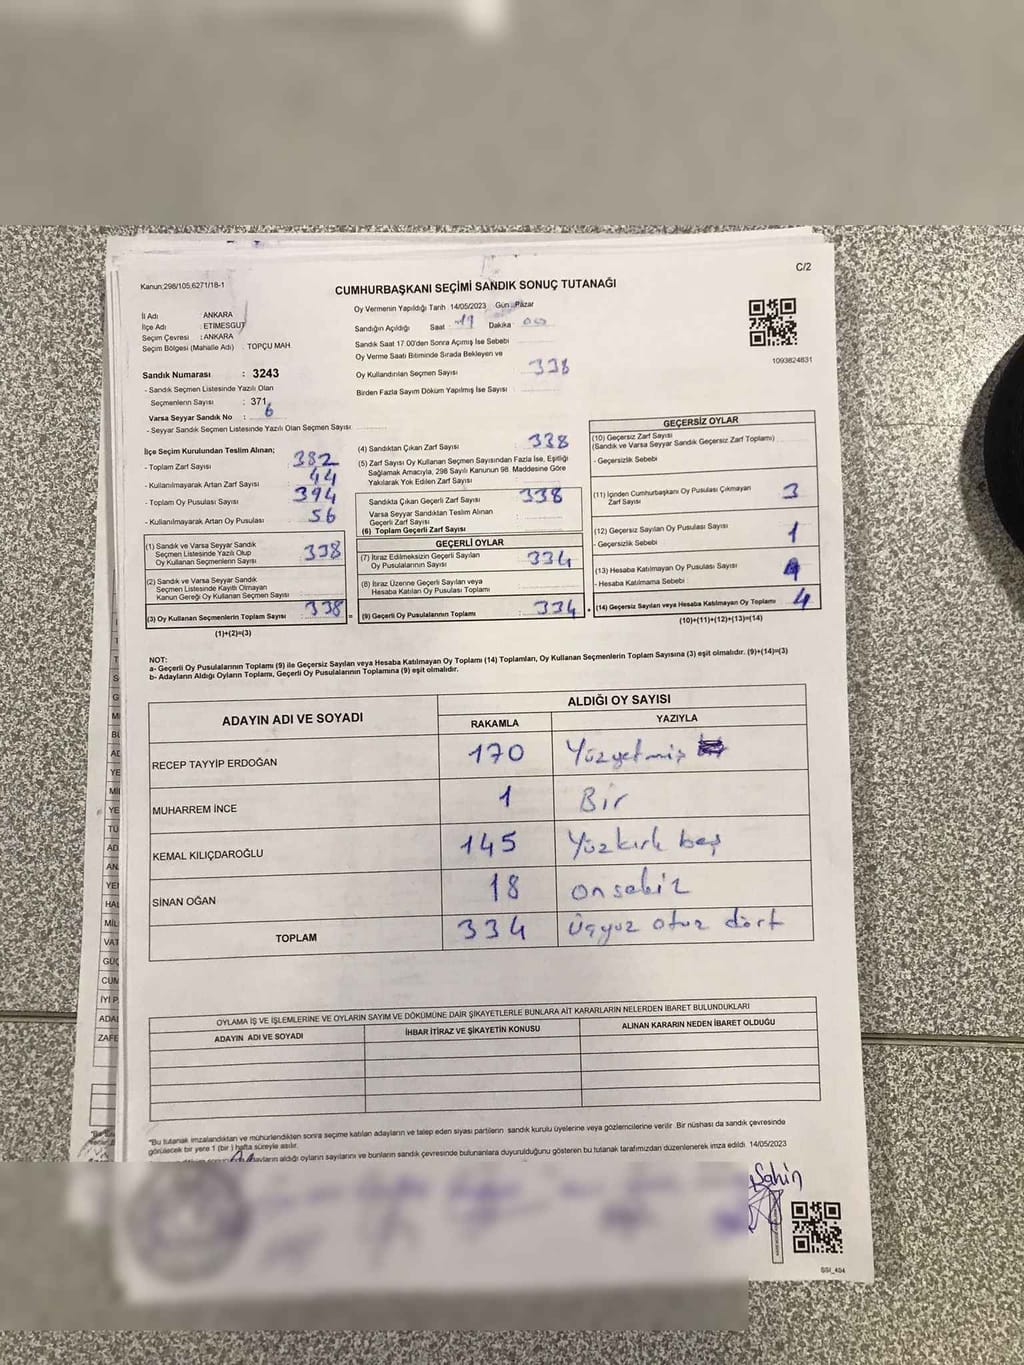 C/2
Kanun:298/105,6271/18-1
CUMHURBAŞKANI SEÇİMİ SANDIK SONUÇ TUTANAĞI
İl Adı : ANKARA
İlçe Adı : ETİMESGUT
Seçim Çevresi : ANKARA
Seçim Bölgesi (Mahalle Adı) : TOPÇU MAH.
Sandık Numarası : 3243
- Sandık Seçmen Listesinde Yazılı Olan
Seçmenlerin Sayısı : 371
Varsa Seyyar Sandık No : 6
- Seyyar Sandık Seçmen Listesinde Yazılı Olan Seçmen Sayısı
Oy Vermenin Yapıldığı Tarih 14/05/2023 Gün : Pazar
Sandığın Açıldığı Saat : 17 Dakika : 00
Sandık Saat 17.00'den Sonra Açılmış İse Sebebi
Oy Verme Saati Bitiminde Sırada Bekleyen ve
Oy Kullandırılan Seçmen Sayısı : 338
Birden Fazla Sayım Döküm Yapılmış İse Sayısı :
1093824831
İlçe Seçim Kurulundan Teslim Alınan;
- Toplam Zarf Sayısı : 382
- Kullanılmayarak Artan Zarf Sayısı : 44
- Toplam Oy Pusulası Sayısı : 394
- Kullanılmayarak Artan Oy Pusulası : 56
(1) Sandık ve Varsa Seyyar Sandık
Seçmen Listesinde Yazılı Olup
Oy Kullanan Seçmenlerin Sayısı : 338
(2) Sandık ve Varsa Seyyar Sandık
Seçmen Listesinde Kayıtlı Olmayan
Kanun Gereği Oy Kullanan Seçmen Sayısı :
(3) Oy Kullanan Seçmenlerin Toplam Sayısı : 338
(1)+(2)=(3)
(4) Sandıktan Çıkan Zarf Sayısı : 338
(5) Zarf Sayısı Oy Kullanan Seçmen Sayısından Fazla İse, Eşitliği
Sağlamak Amacıyla, 298 Sayılı Kanunun 98. Maddesine Göre
Yakılarak Yok Edilen Zarf Sayısı :
Sandıkta Çıkan Geçerli Zarf Sayısı : 338
Varsa Seyyar Sandıktan Teslim Alınan
Geçerli Zarf Sayısı :
(6) Toplam Geçerli Zarf Sayısı :
GEÇERLİ OYLAR
(7) İtiraz Edilmeksizin Geçerli Sayılan
Oy Pusulalarının Sayısı : 334
(8) İtiraz Üzerine Geçerli Sayılan veya
Hesaba Katılan Oy Pusulası Toplamı :
(9) Geçerli Oy Pusulalarının Toplamı : 334
GEÇERSİZ OYLAR
(10) Geçersiz Zarf Sayısı
(Sandık ve Varsa Seyyar Sandık Geçersiz Zarf Toplamı)
- Geçersizlik Sebebi :
(11) İçinden Cumhurbaşkanı Oy Pusulası Çıkmayan
Zarf Sayısı : 3
(12) Geçersiz Sayılan Oy Pusulası Sayısı : 1
- Geçersizlik Sebebi :
(13) Hesaba Katılmayan Oy Pusulası Sayısı :
- Hesaba Katılmama Sebebi :
(14) Geçersiz Sayılan veya Hesaba Katılmayan Oy Toplamı : 4
(10)+(11)+(12)+(13)=(14)
NOT:
a- Geçerli Oy Pusulalarının Toplamı (9) ile Geçersiz Sayılan veya Hesaba Katılmayan Oy Toplamı (14) Toplamları, Oy Kullanan Seçmenlerin Toplam Sayısına (3) eşit olmalıdır. (9)+(14)=(3)
b- Adayların Aldığı Oyların Toplamı, Geçerli Oy Pusulalarının Toplamına (9) eşit olmalıdır.
ADAYIN ADI VE SOYADI
ALDIĞI OY SAYISI
RAKAMLA YAZIYLA
RECEP TAYYİP ERDOĞAN 170 Yüzyetmiş
MUHARREM İNCE 1 Bir
KEMAL KILIÇDAROĞLU 145 Yüzkırk beş
SİNAN OĞAN 18 onsekiz
TOPLAM 334 Üçyüz otuz dört
OYLAMA İŞ VE İŞLEMLERİNE VE OYLARIN SAYIM VE DÖKÜMÜNE DAİR ŞİKAYETLERLE BUNLARA AİT KARARLARIN NELERDEN İBARET BULUNDUKLARI
ADAYIN ADI VE SOYADI İHBAR İTİRAZ VE ŞİKAYETİN KONUSU ALINAN KARARIN NEDEN İBARET OLDUĞU
"Bu tutanak imzalandıktan ve mühürlendikten sonra seçime katılan adayların ve talep eden siyasi partilerin sandık kurulu üyelerine veya gözlemcilerine verilir. Bir nüshası da sandık çevresinde
görülecek bir yere 1 (bir) hafta süreyle asılır.
adayların aldığı oyların sayılarını ve bunların sandık çevresinde bulunanlara duyurulduğunu gösteren bu tutanak tarafımızdan düzenlenerek imza edildi. 14/05/2023
Şahin
SSI_404